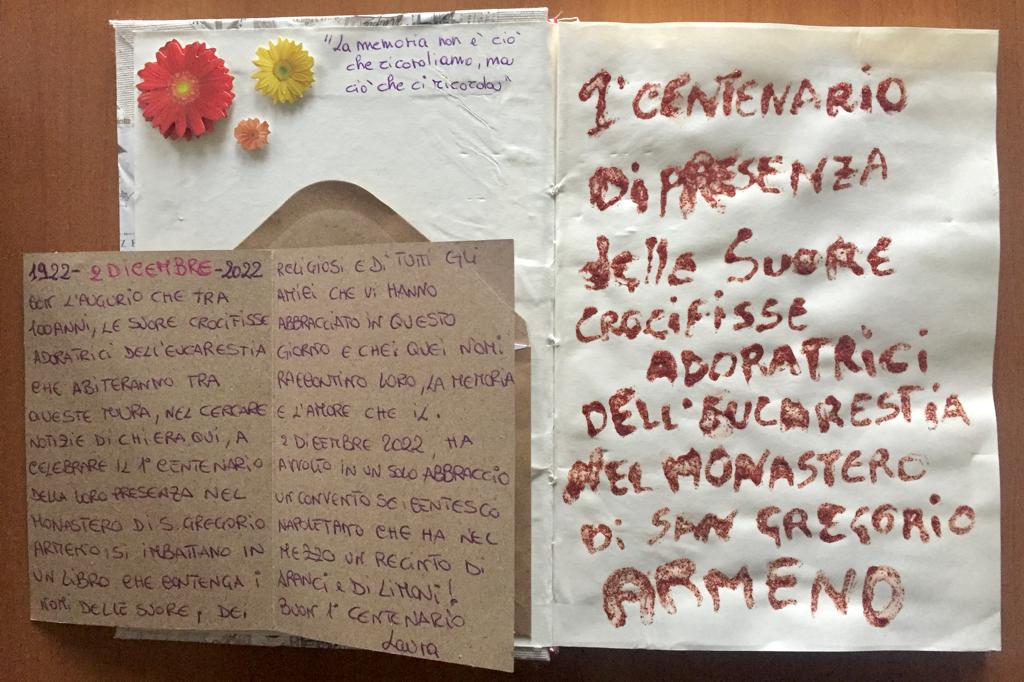 "La memoria non è ciò
che ricordiamo, ma
ciò che ci ricorda"
1922- 2 DICEMBRE -2022
CON L'AUGURIO CHE TRA
100 ANNI, LE SUORE CROCIFISSE
ADORATRICI DELL'EUCARESTIA
CHE ABITERANNO TRA
QUESTE MURA, NEL CERCARE
NOTIZIE DI CHI ERA QUI, A
CELEBRARE IL 1° CENTENARIO
DELLA LORO PRESENZA NEL
MONASTERO DI S. GREGORIO
ARMENO, SI IMBATTANO IN
UN LIBRO CHE CONTENGA I
NOMI DELLE SUORE, DEI
RELIGIOSI E DI TUTTI GLI
AMICI CHE VI HANNO
ABBRACCIATO IN QUESTO
GIORNO E CHE QUEI NOMI
RACCONTINO LORO, LA MEMORIA
E L'AMORE CHE IL
2 DICEMBRE 2022, HA
AVVOLTO IN UN SOLO ABBRACCIO
UN CONVENTO SEICENTESCO
NAPOLETANO CHE HA NEL
MEZZO UN RECINTO DI
ARANCI E DI LIMONI!
BUON 1° CENTENARIO
Laura
1° CENTENARIO
Di PRESENZA
delle SUORE
CROCIFISSE
ADORATRICI
DELL'EUCARESTIA
NEL MONASTERO
Di SAN GREGORIO
ARMENO